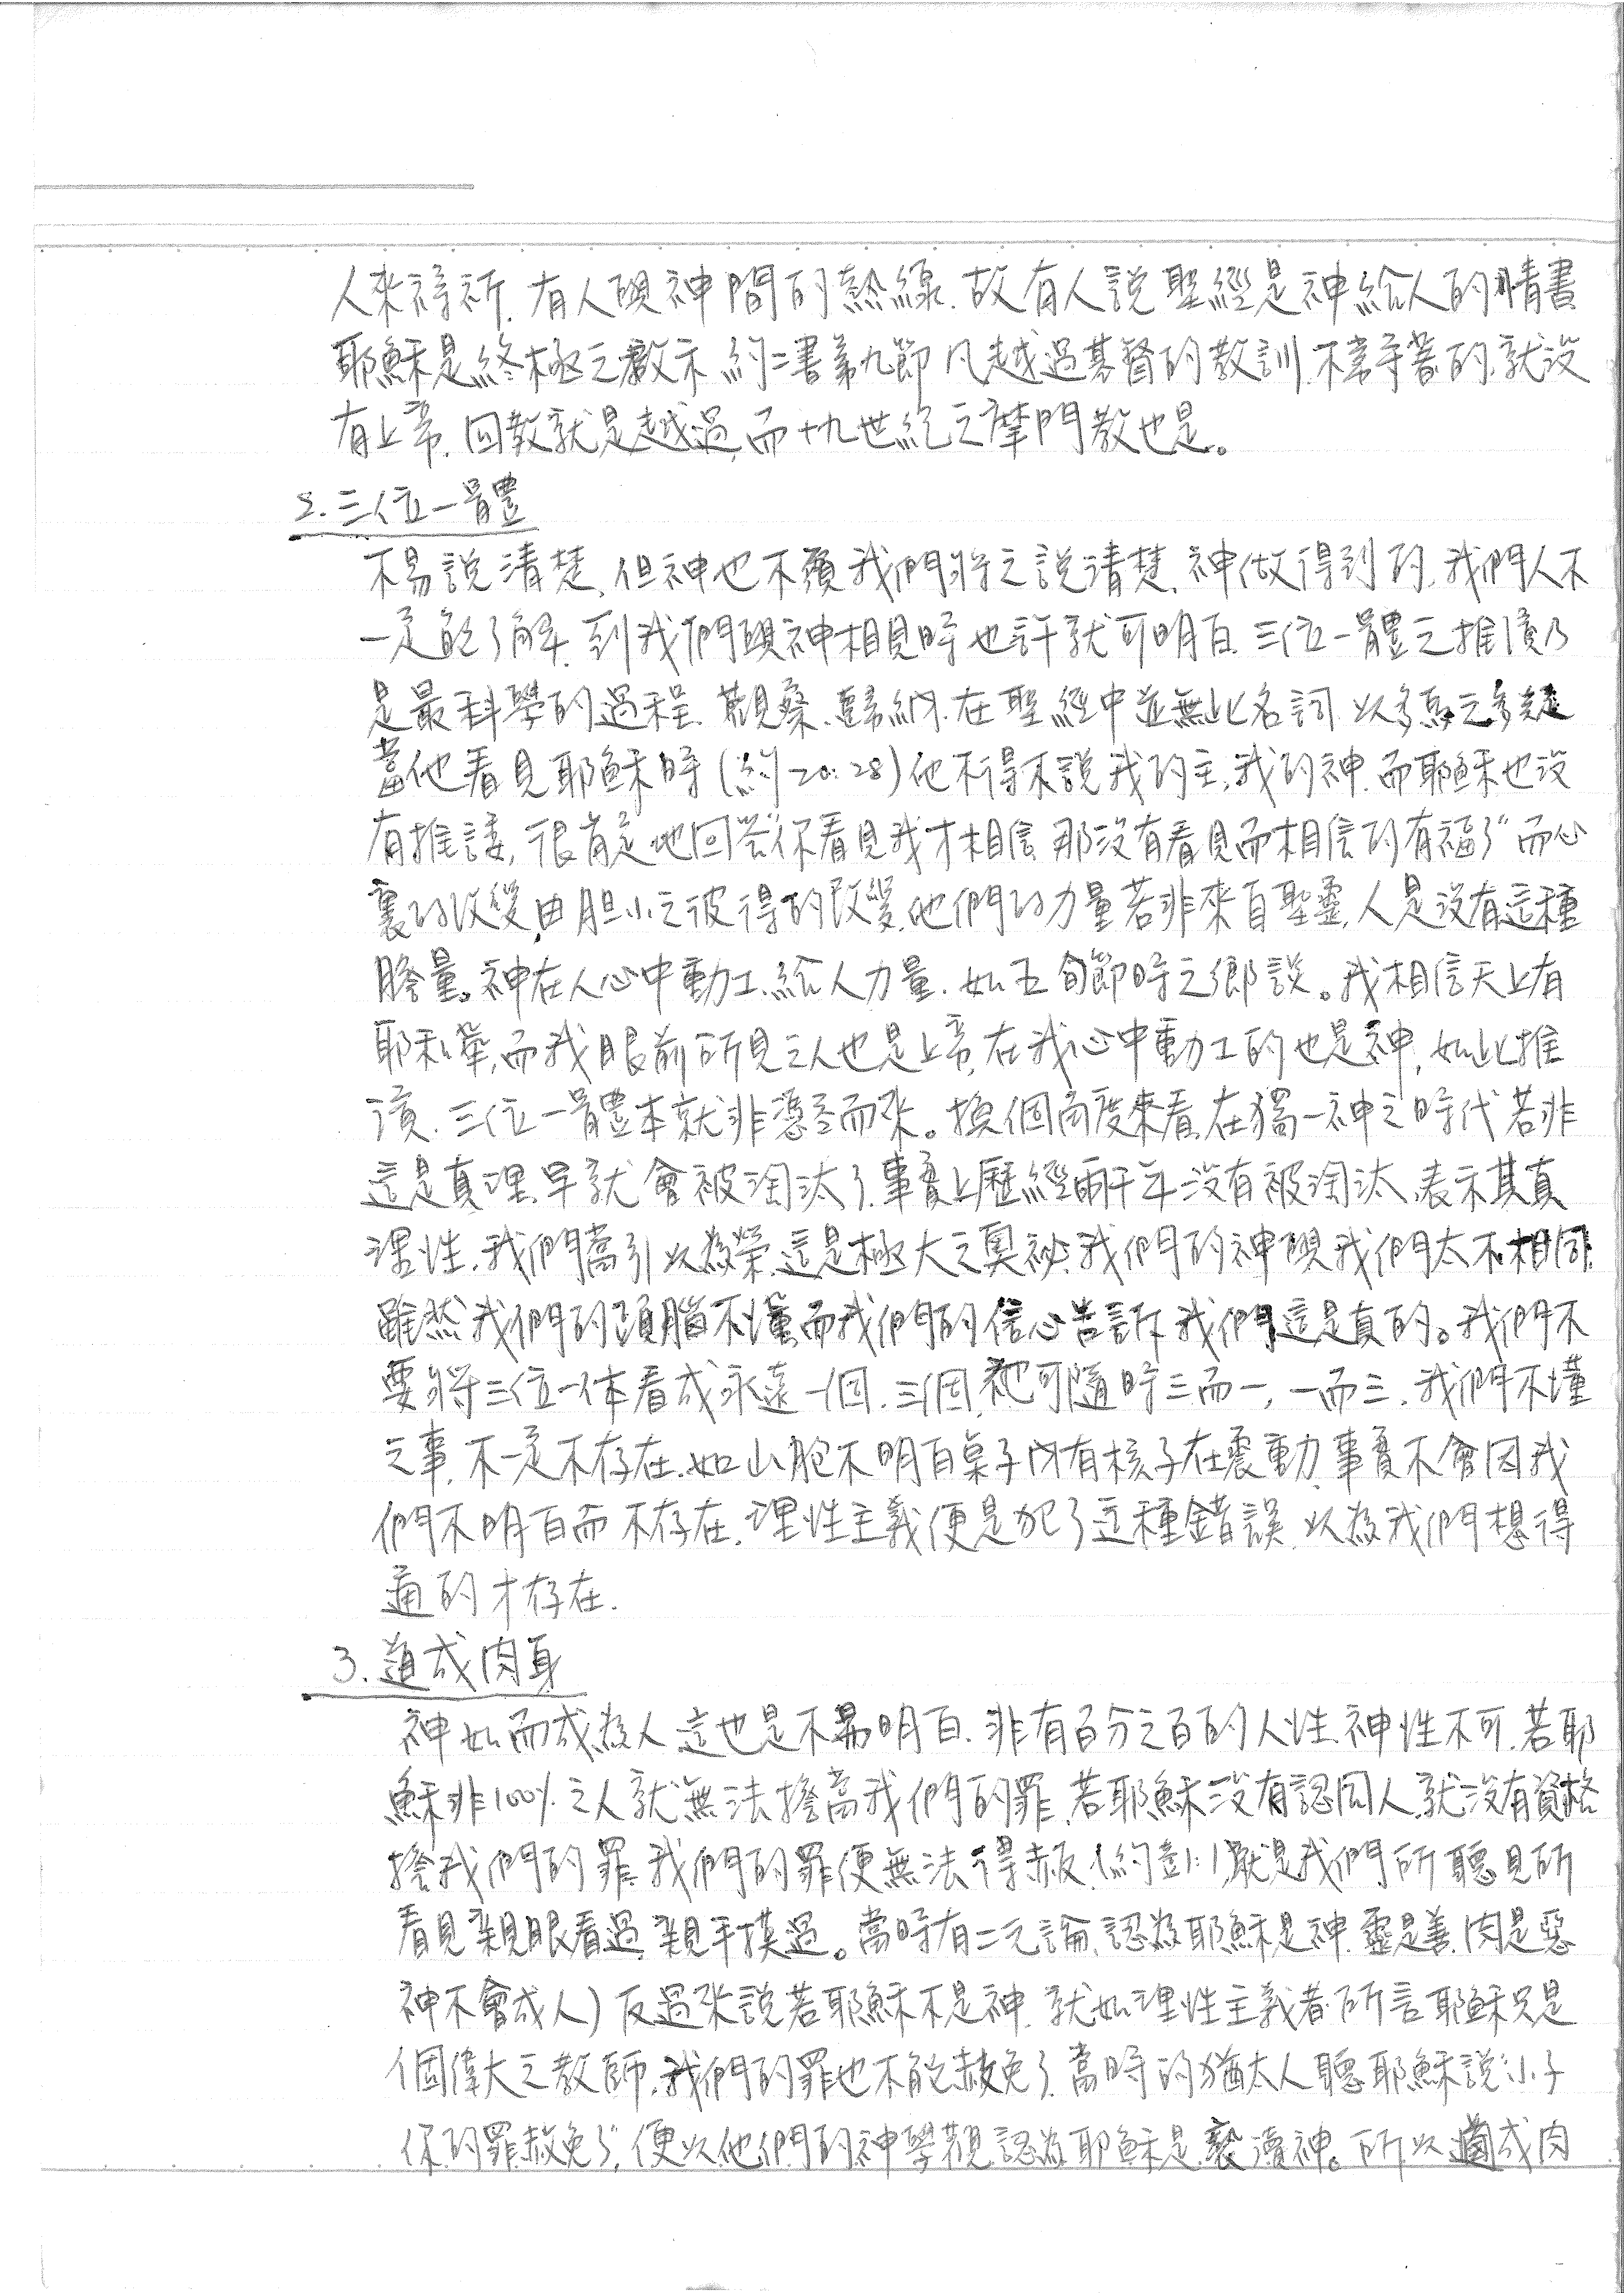 人來禱祈.有人與神間的熱線.故有人說聖經是神給人的情書
耶穌是終極之啟示.約二書第九節凡越過基督的教訓.不常守著的.就沒
有上帝.回教就是越過,而十九世紀之摩門教也是。
2.三位一體
不易說清楚,但神也不須我們將之說清楚.神做得到的,我們人不
一定能了解.到我們與神相見時也許就可明白.三位一體之推演乃
是最科學的過程.觀察.歸納.在聖經中並無此名詞.以多馬之多疑
當他看見耶穌時(約20:28)他不得不說我的主,我的神.而耶穌也沒
有推諉,很肯定地回答“你看見我才相信.那沒有看見而相信的有福了”而心
裏的改變,由胆小之彼得的改變.他們的力量若非來自聖靈,人是沒有這種
膽量。神在人心中動工.給人力量.如五旬節時之鄉談。我相信天上有
耶和華,而我眼前所見之人也是上帝,在我心中動工的也是神,如此推
演.三位一體本就非憑空而來。換個角度來看,在獨一神之時代若非
這是真理.早就會被淘汰了.事實上歷經兩千年沒有被淘汰,表示其真
理性.我們當引以為榮.這是極大之奧祕.我們的神與我們太不相同.
雖然我們的頭腦不懂,而我們的信心告訴我們這是真的。我們不
要將三位一体看成永遠一個.三個,祂可隨時三而一,一而三.我們不懂
之事.不一定不存在.如山胞不明白桌子內有核子在震動.事實不會因我
們不明白而不存在.理性主義便是犯了這種錯誤.以為我們想得
通的才存在.
3.道成肉身
神如而成為人這也是不易明白.非有百分之百的人性.神性不可.若耶
穌非100%之人就無法擔當我們的罪.若耶穌沒有認同人.就沒有資格
擔我們的罪.我們的罪便無法得赦.(約壹1:1就是我們所聽見所
看見親眼看過,親手摸過。當時有二元論,認為耶穌是神.靈是善.肉是惡
神不會成人)反過來說若耶穌不是神.就如理性主義者所言耶穌只是
個偉大之教師.我們的罪也不能赦免了.當時的猶太人聽耶穌說“小子
你的罪赦免了”,便以他們的神學觀認為耶穌是褻瀆神。所以道成肉